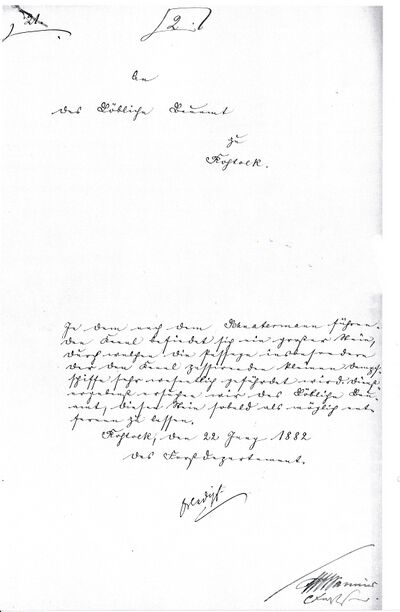 21.
2.
An
das Löbliche Bauamt
zu
Rostock.
In dem nach dem Schnatermann führen-
den Kanal befindet sich ein großer Stein,
durch welchen die Passage insbesondere
der den Kanal passirenden kleinen Dampf-
schiffe sehr wesentlich gefährdet wird. Dienst-
ergebenst ersuchen wir das Löbliche Bau-
amt, diesen Stein sobald als möglich ent-
fernen zu lassen.
Rostock, den 22 Juny 1882
Das Forstdepartement.